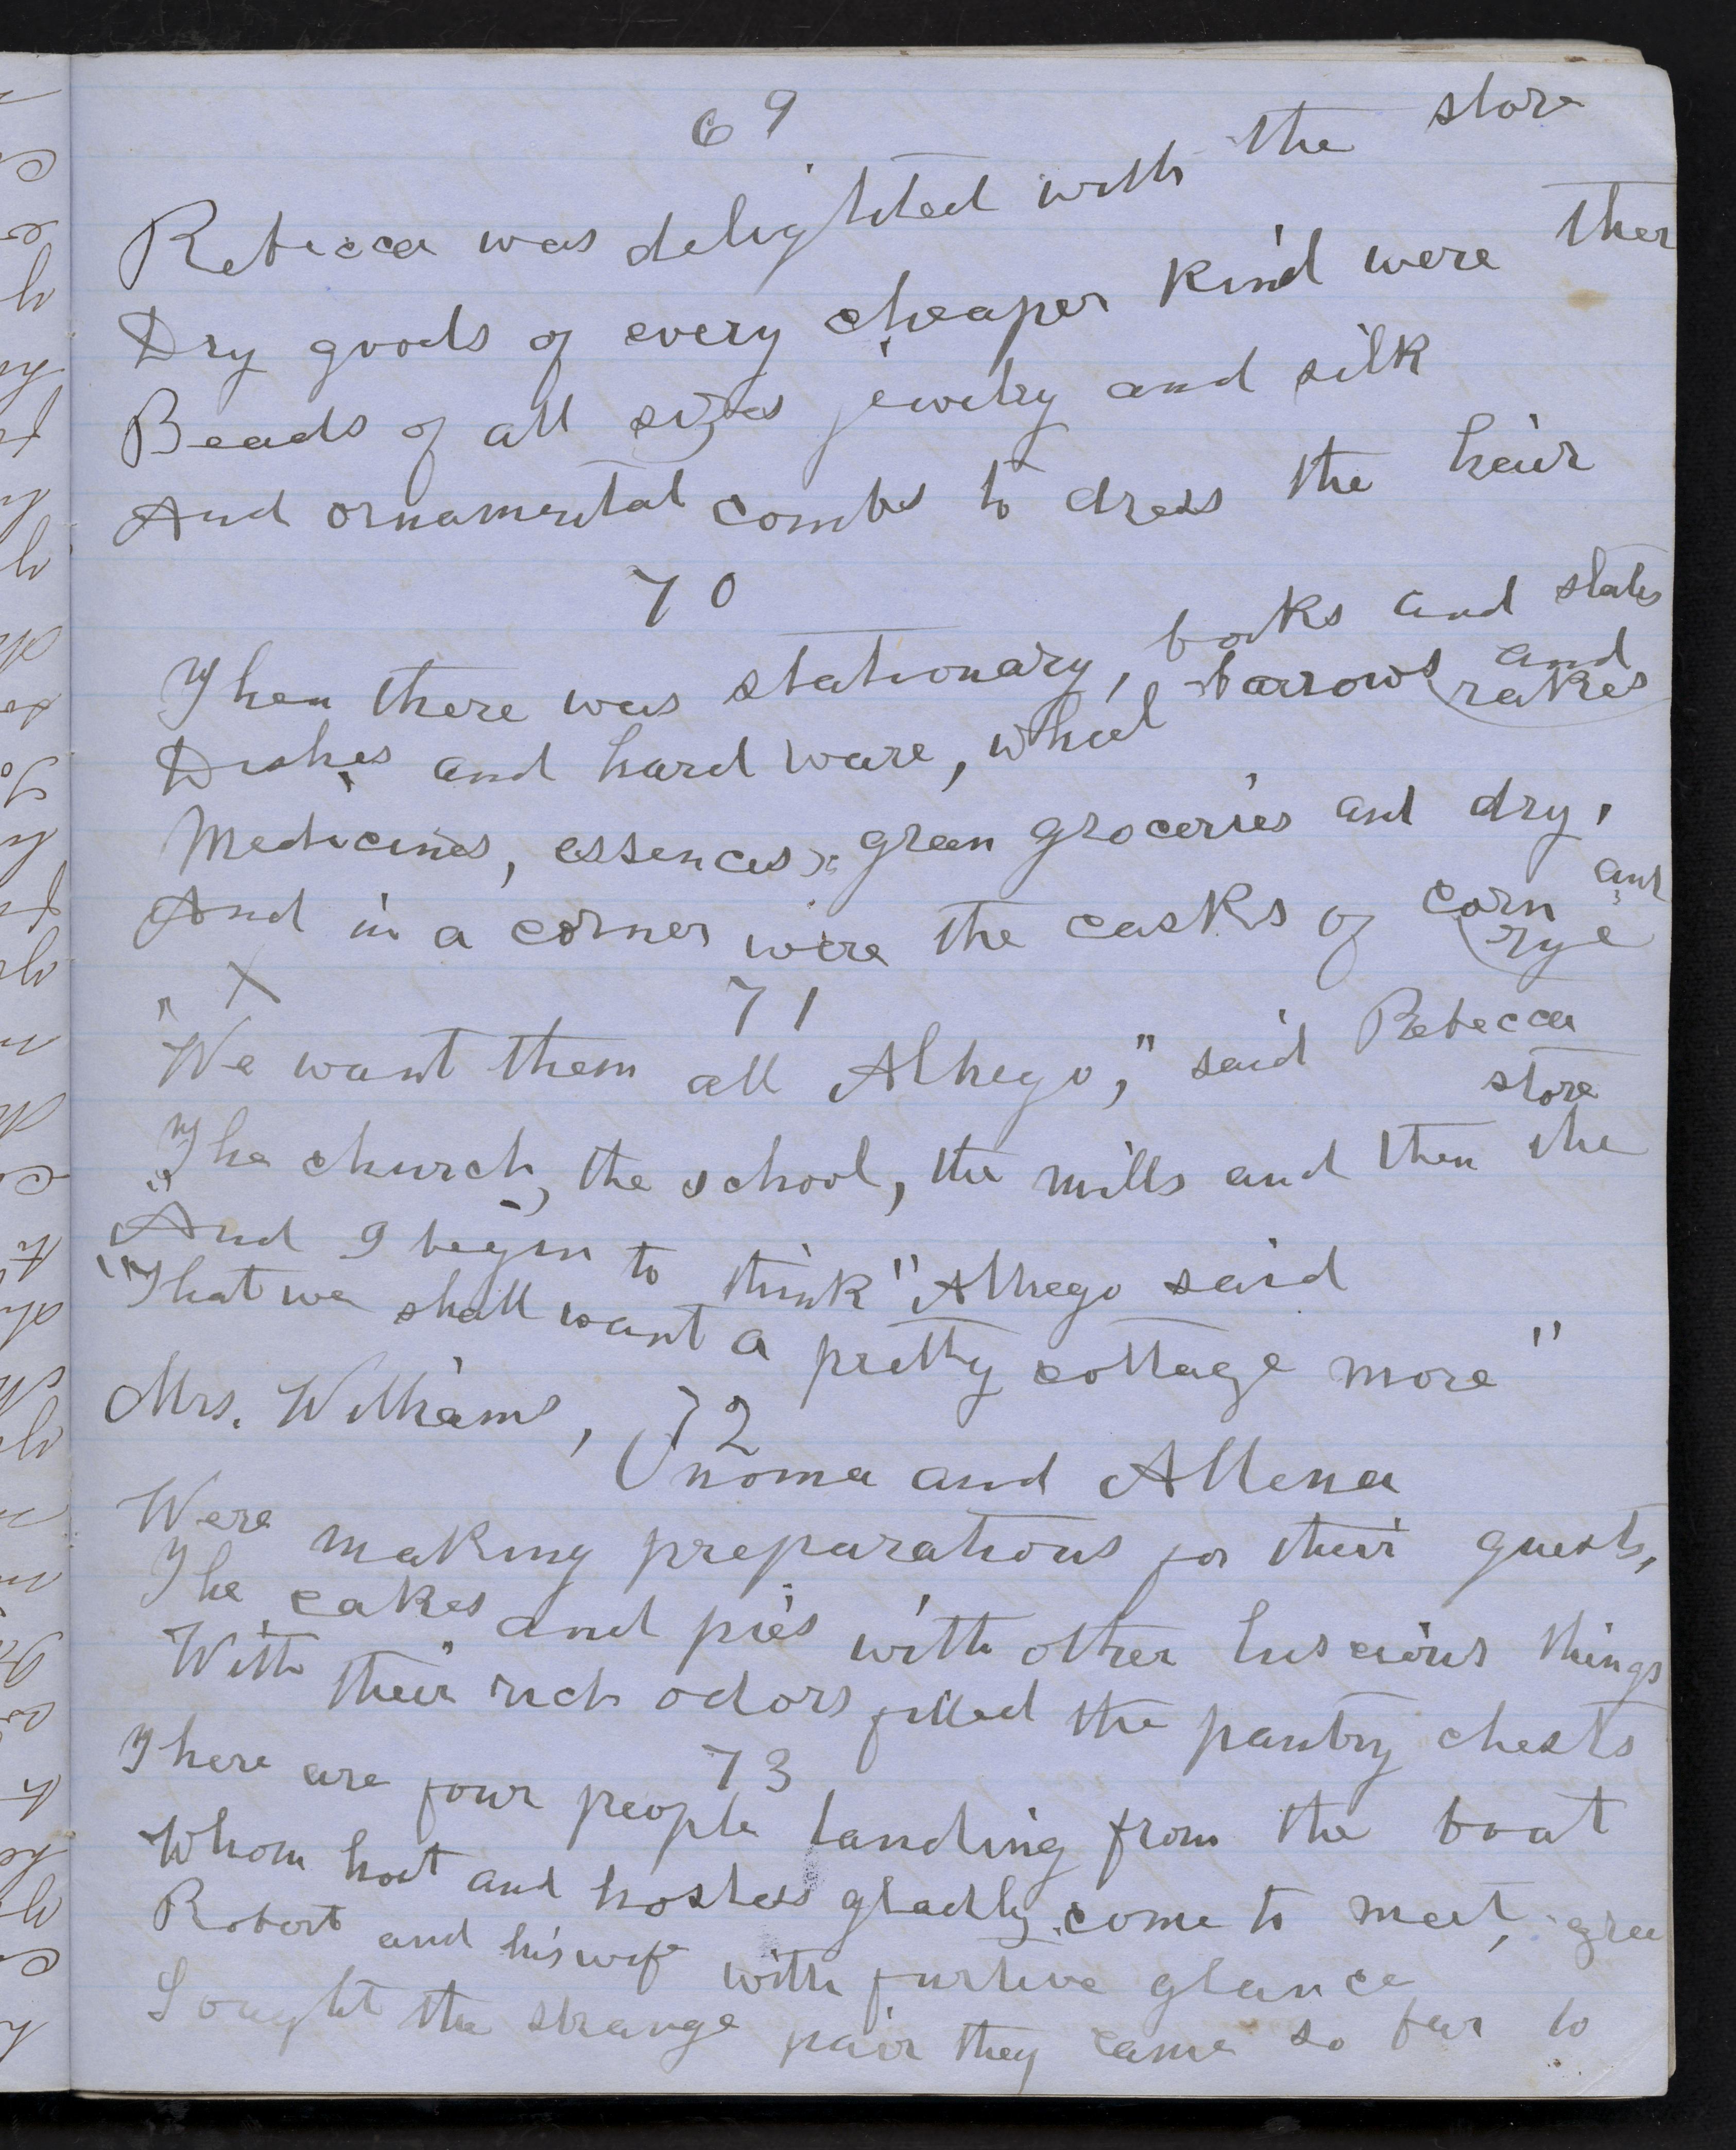 69
Rebecca was delighted with the store
Dry goods of every cheaper kind were ther
Beads of all sizes jewelry and silk
And ornamental combs to dress the hair
70
Then there was stationary, books and slates
Dishes and hard ware, wheel barrows and rakes
Medicines, essences, green groceries and dry,
And in a corner were the casks of corn and rye
X
71
"We want them all Alhego," said Rebecca
"The church, the school, the mills and then the store
"And I begin to think" Alhego said
"That we shall want a pretty cottage more"
72
Mrs. Williams, Unoma and Allena
Were making preparations for their guests,
The cakes and pies with other luscious things
With their rich odors filled the pantry chests
73
There are four people landing from the boat
Whom host and hostess gladly come to meet, gree
Robert and his wife with furtive glance
Sought the strange pair they came so far to